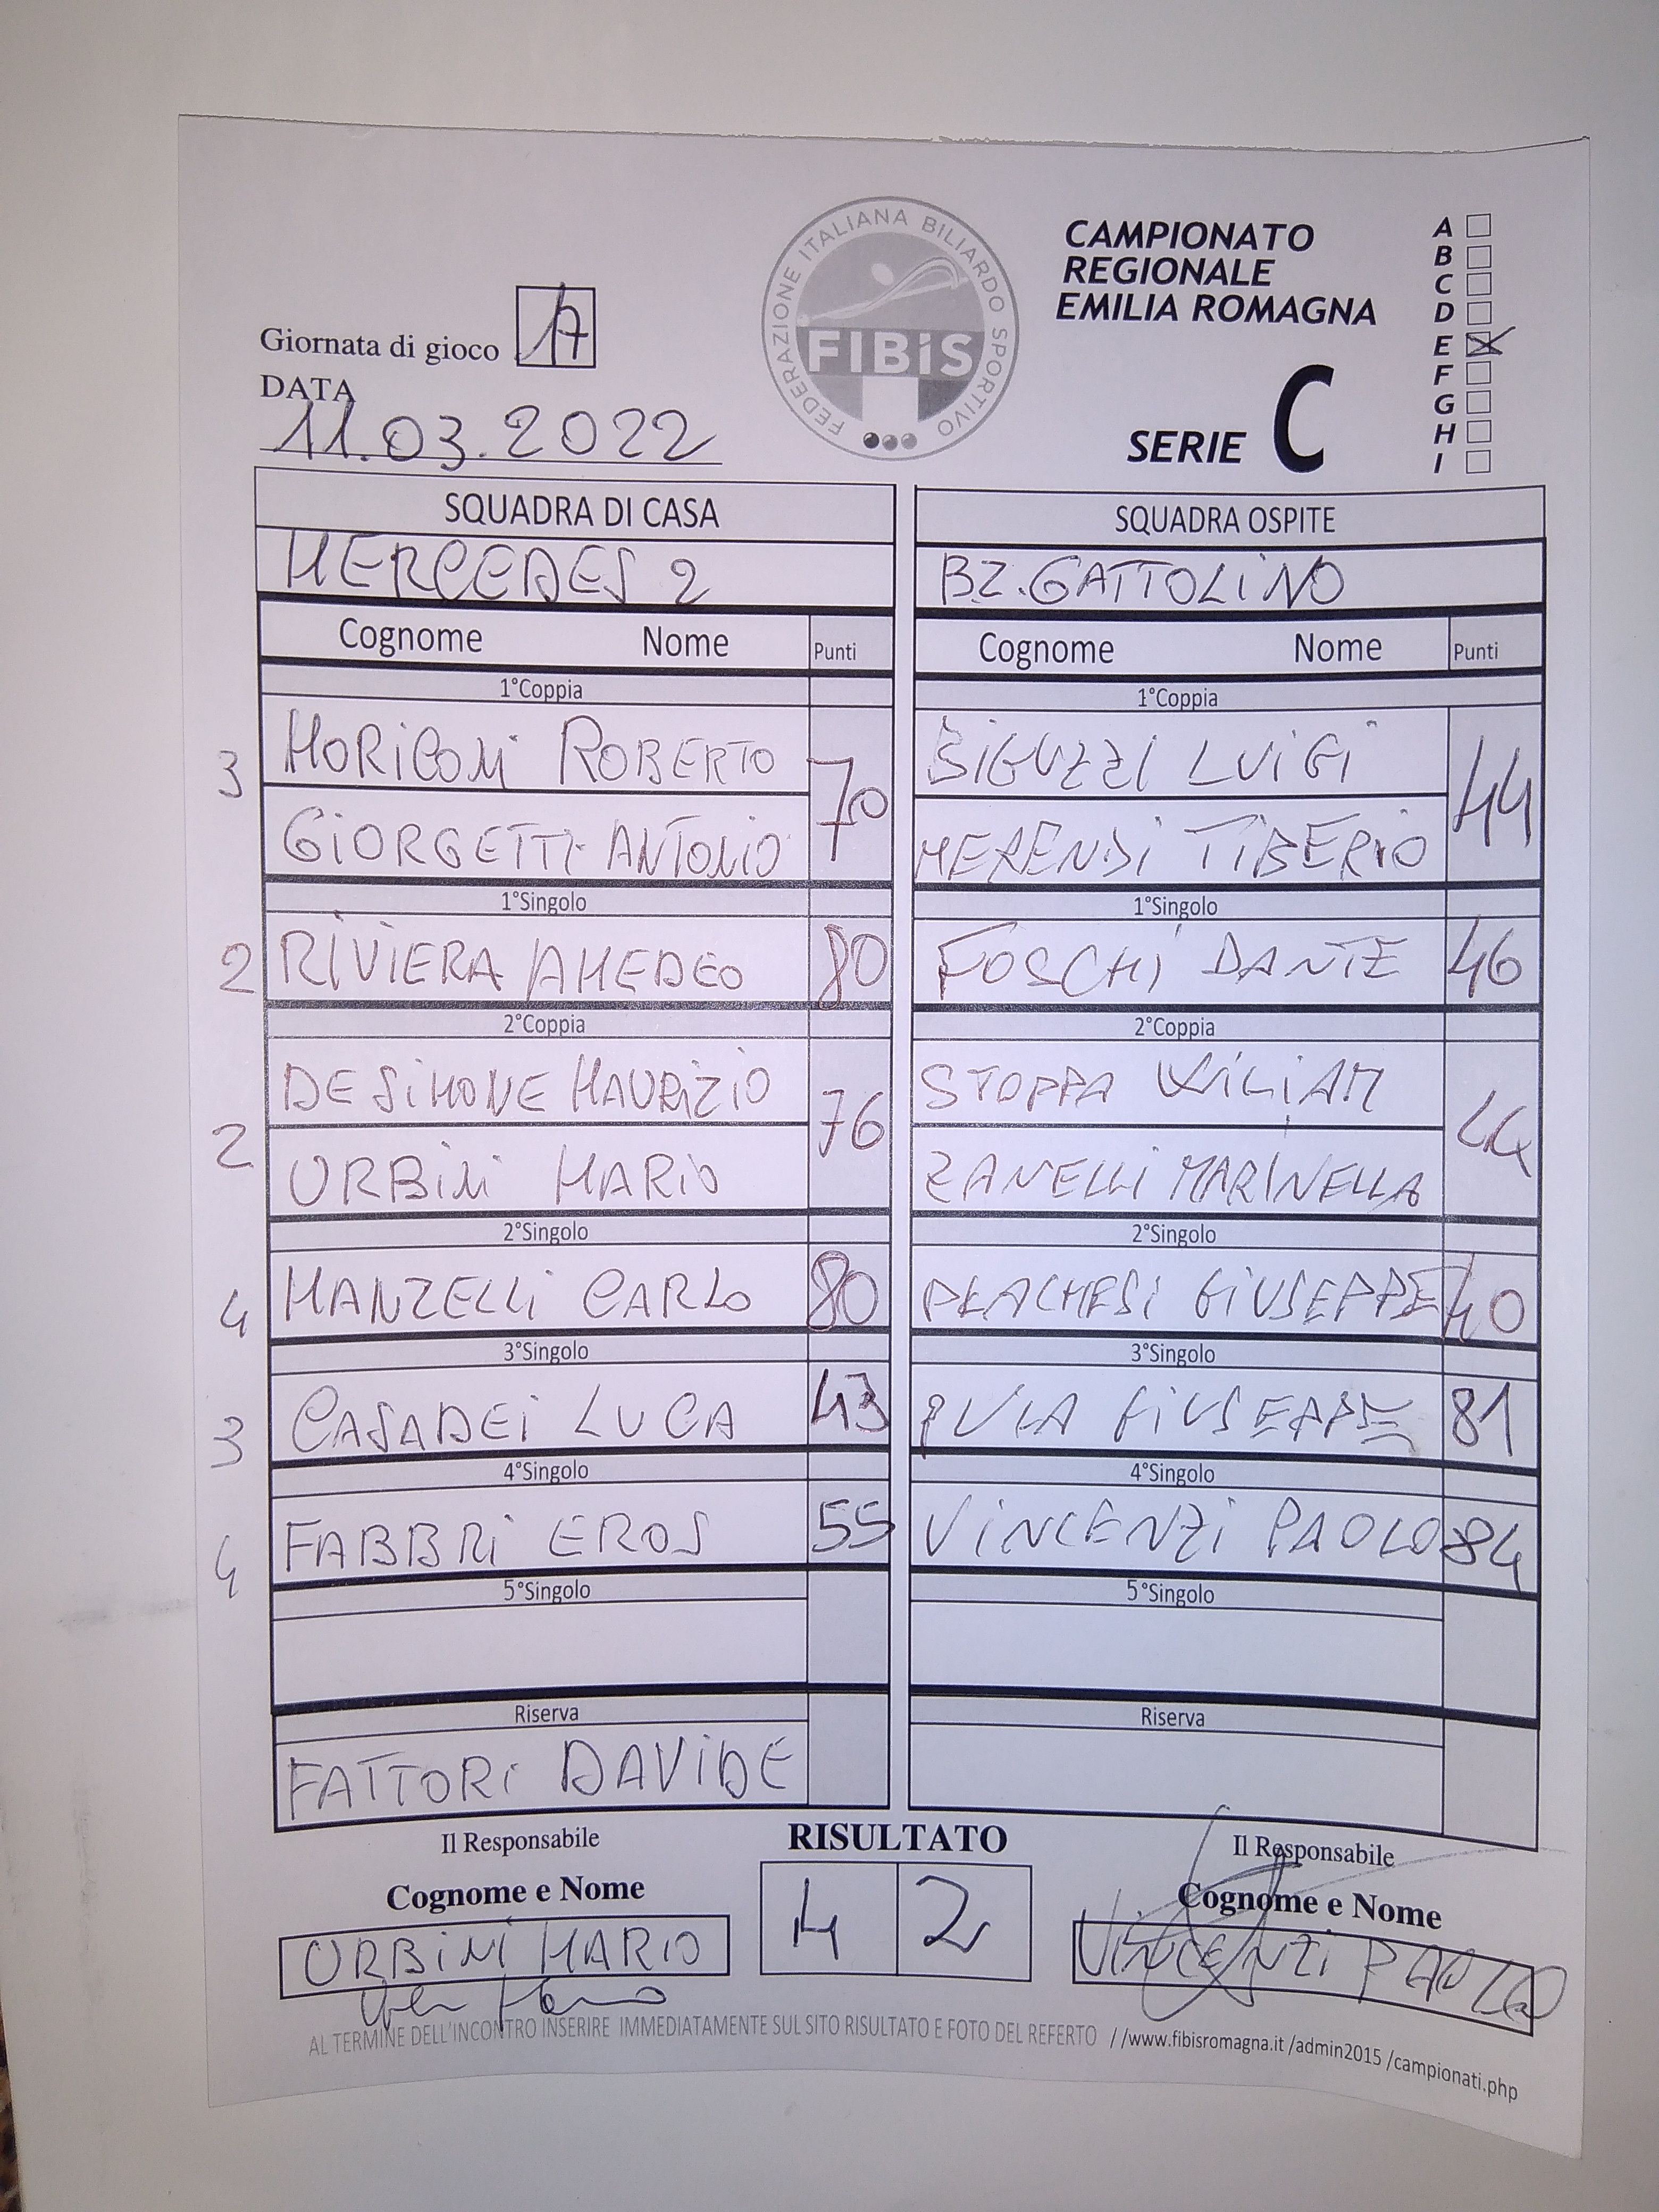 FEDERAZIONE ITALIANA BILIARDO SPORTIVO
FIBiS
CAMPIONATO
REGIONALE
EMILIA ROMAGNA
SERIE C
A
B
C
D
E
F
G
H
I
Giornata di gioco 17
DATA
11.03.2022
SQUADRA DI CASA
MERCEDES 2
Cognome Nome Punti
1°Coppia
MORICONI ROBERTO
70
GIORGETTI ANTONIO
3
1°Singolo
RIVIERA AMEDEO 80
2
2°Coppia
DE SIMONE MAURIZIO
76
URBINI MARIO
2
2°Singolo
MANZELLI CARLO 80
4
3°Singolo
CASADEI LUCA 43
3
4°Singolo
FABBRI EROS 55
4
5°Singolo
Riserva
FATTORI DAVIDE
SQUADRA OSPITE
BZ.GATTOLINO
Cognome Nome Punti
1°Coppia
BIGUZZI LUIGI
44
MERENDI TIBERIO
1°Singolo
FOSCHI DANTE 46
2°Coppia
STOPPA WILIAM
44
ZANELLI MARINELLA
2°Singolo
GIUSEPPE 40
3°Singolo
PULA GIUSEPPE 81
4°Singolo
VINCENZI PAOLO 84
5°Singolo
Riserva
Il Responsabile
Cognome e Nome
URBINI MARIO
RISULTATO
4 2
Il Responsabile
Cognome e Nome
VINCENZI PAOLO
AL TERMINE DELL'INCONTRO INSERIRE IMMEDIATAMENTE SUL SITO RISULTATO E FOTO DEL REFERTO //www.fibisromagna.it /admin2015 /campionati.php